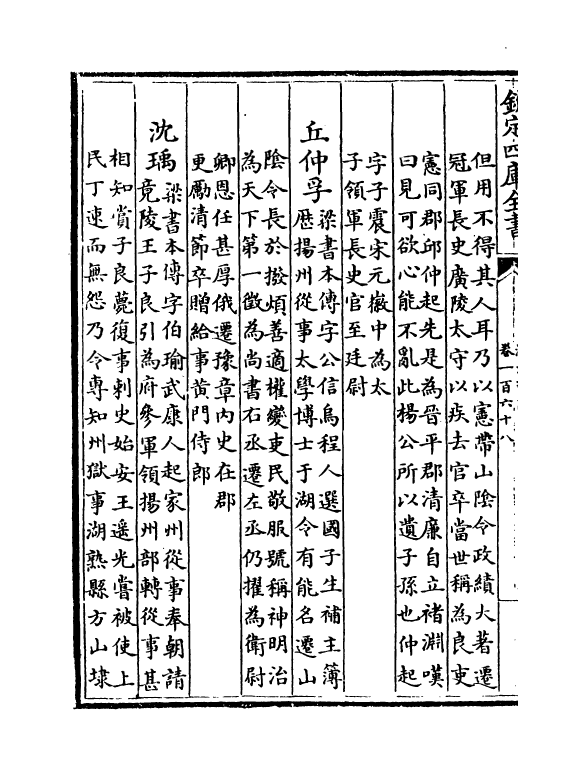 欽定四庫全書
卷一百六十八
但用不得其人耳乃以憲帶山陰令政績大著遷
冠軍長史廣陵太守以疾去官卒當世稱為良吏
憲同郡邱仲起先是為晉平郡清廉自立褚淵嘆
曰見可欲心能不亂此楊公所以遺子孫也仲起
字子震宋元徽中為太
子領軍長史官至廷尉
丘仲孚
梁書本傳字公信烏程人選國子生補主簿
歴揚州從事太學博士于湖令有能名遷山
陰令長於撥煩善適權變吏民敬服號稱神明治
為天下第一徵為尚書右丞遷左丞仍擢為衛尉
卿恩任甚厚俄遷豫章内史在郡
更勵清節卒贈給事黄門侍郎
沈瑀
梁書本傳字伯瑜武康人起家州從事奉朝請
竟陵王子良引為府參軍領揚州部轉從事甚
相知賞子良薨復事刺史始安王遥光嘗被使上
民丁速而無怨乃令專知州獄事湖熟縣方山埭